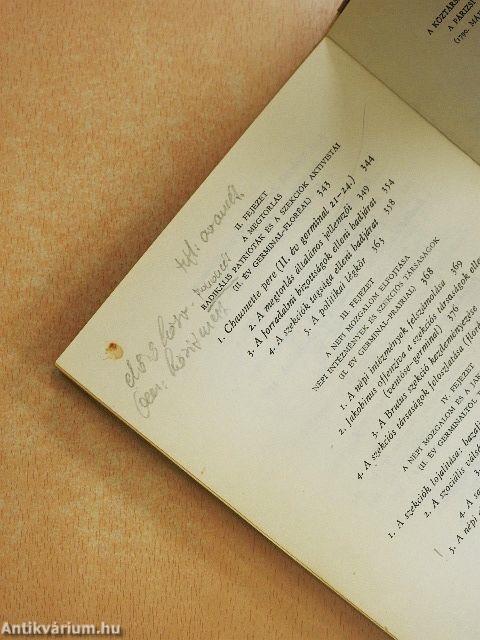 A KÖZTÁRS
A PÁRIZSI
(1790. MÁ
II. FEJEZET
A MEGTORLÁS
RADIKÁLIS PATRIÓTÁK ÉS A SZEKCIÓK AKTIVISTÁI
(II. ÉV GERMINAL–FLORÉAL) 343
1. Chaumette pere (II. év germinal 21–24.) 344
2. A megtorlás általános jellemzői 349
3. A forradalmi bizottságok elleni hadjárat 354
4. A szekciók tagsága elleni hadjárat 358
5. A politikai légkör 363
III. FEJEZET
A NÉPI MOZGALOM ELFOJTÁSA
NÉPI INTÉZMÉNYEK ÉS SZEKCIÓS TÁRSASÁGOK
(II. ÉV GERMINAL–PRAIRIAL) 368
1. A népi intézmények felszámolása 369
2. Jakobinus offenzíva a szekciós társaságok elle
(ventôse–germinal) 376
3. A Brutus szekció kezdeményezése
4. A szekciós társaságok feloszlatása (floré
IV. FEJEZET
A NÉPI MOZGALOM ÉS A JAK
(II. ÉV GERMINALTÓL
1. A szekciók lojalitása: hazafi
2. A szociális válsá
3.
4. A
5. A népi
Antikvárium.hu